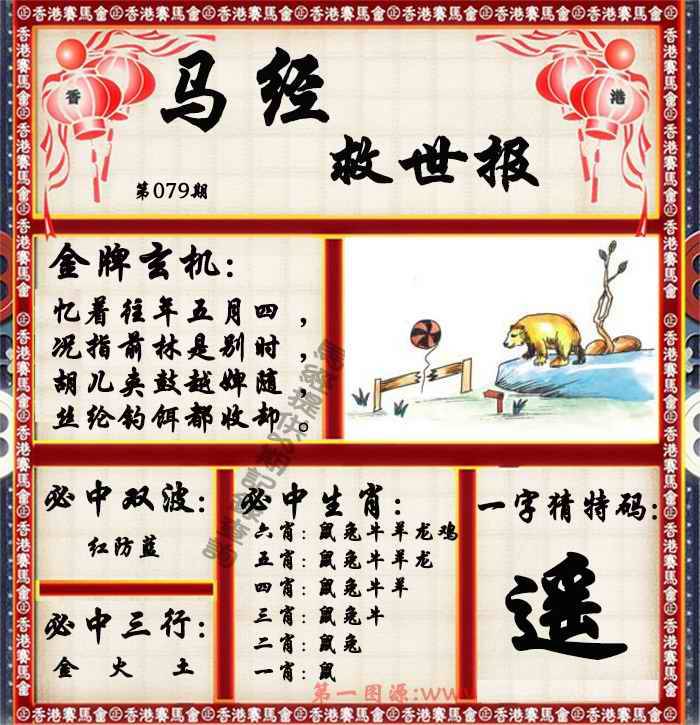 香港賽馬會
香 港
马经
救世报
第079期
金牌玄机：
忆着往年五月四，
况指前林是别时，
胡儿夹鼓越婢随，
丝纶钓饵都收却。
必中双波：
红防蓝
必中三行：
金 火 土
必中生肖：
六肖：鼠兔牛羊龙鸡
五肖：鼠兔牛羊龙
四肖：鼠兔牛羊
三肖：鼠兔牛
二肖：鼠兔
一肖：鼠
一字猜特码：
遥
第一图源:www